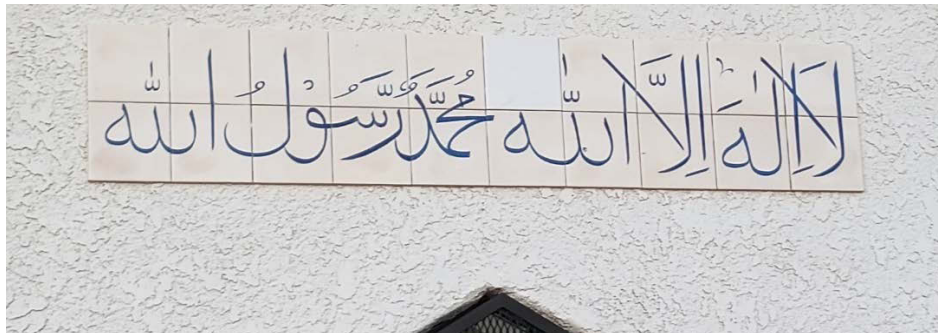 لَا اِلٰهَ اِلَّا اللّٰه مُحَمَّدٌ رَّسُوْلُ اللّٰه